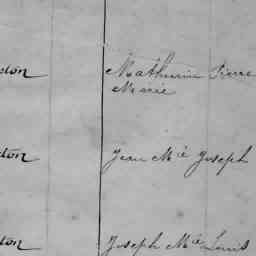 Mathurin Pierre
Marie
Jean Mie Joseph
Joseph Mie Louis